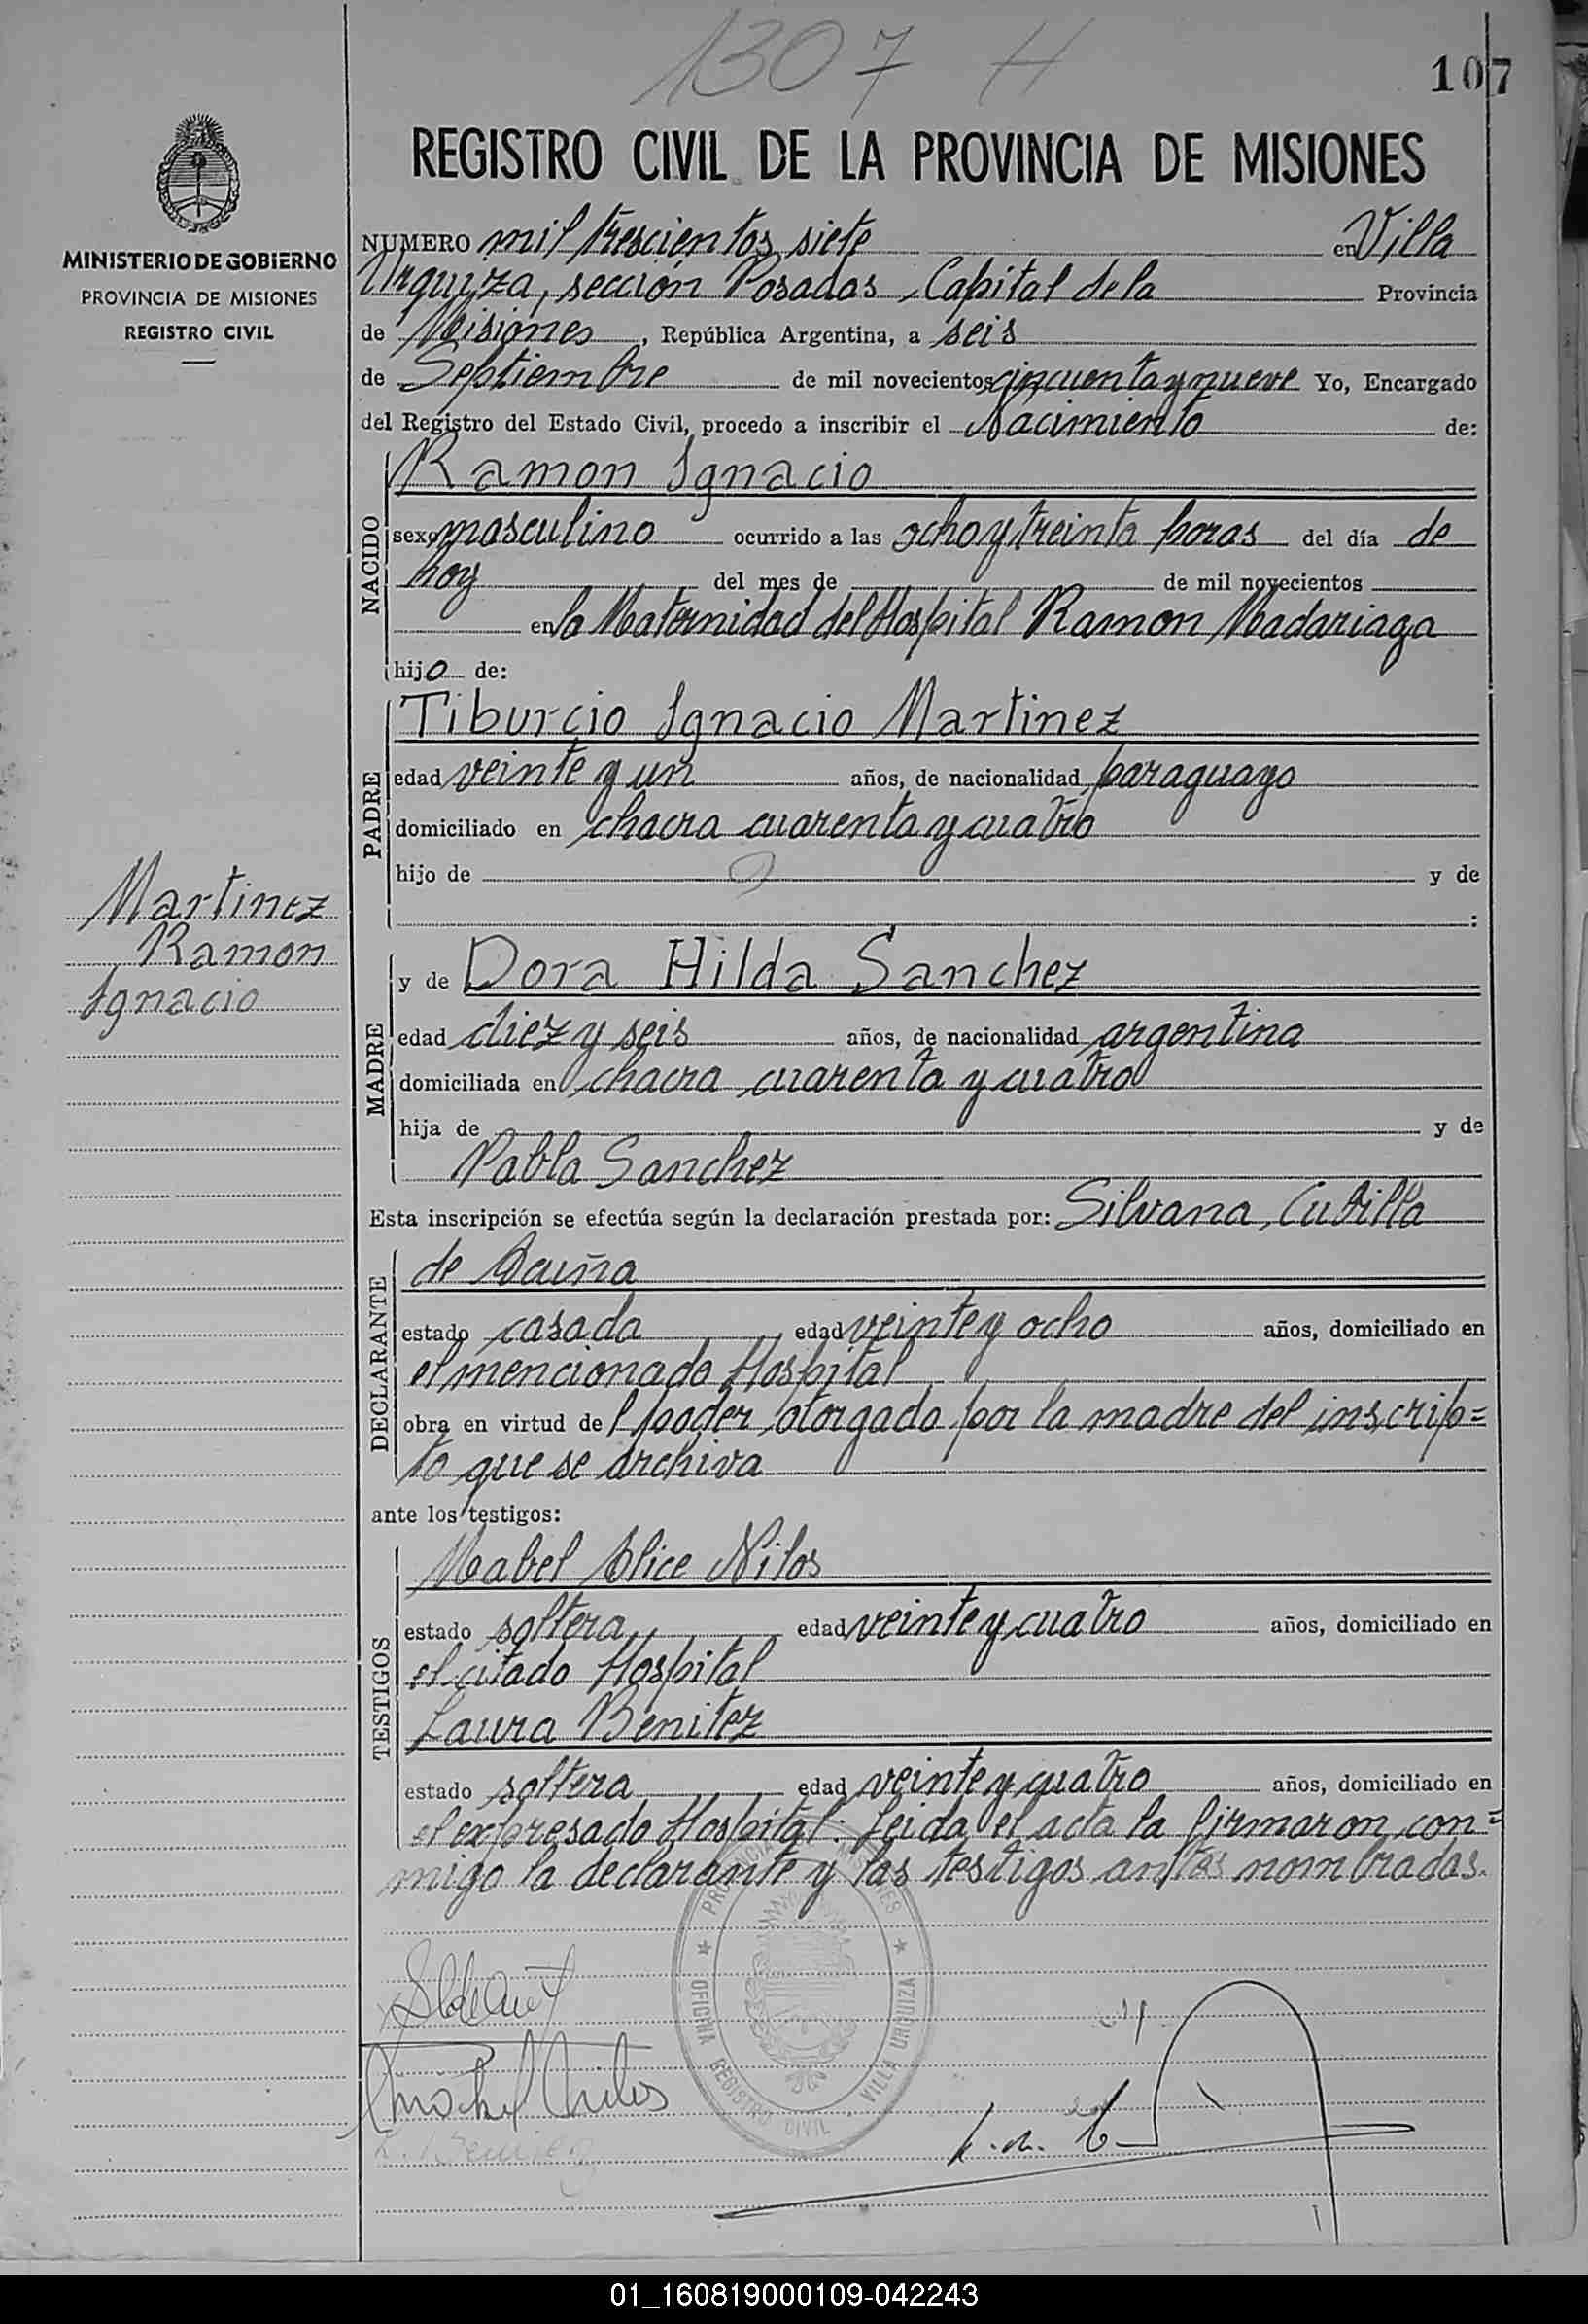 1307 H
107
REGISTRO CIVIL DE LA PROVINCIA DE MISIONES
MINISTERIO DE GOBIERNO
PROVINCIA DE MISIONES
REGISTRO CIVIL
NUMERO mil trescientos siete en Villa
Urquiza, sección Posadas, Capital de la Provincia
de Misiones, República Argentina, a seis
de Septiembre de mil novecientos cincuenta y nueve Yo, Encargado
del Registro del Estado Civil, procedo a inscribir el Nacimiento de:
NACIDO
Ramon Ignacio
sexo masculino ocurrido a las ocho y treinta horas del día de
hoy del mes de de mil novecientos
en la Maternidad del Hospital Ramon Madariaga
hijo de:
PADRE
Tiburcio Ignacio Martinez
edad veinte y un años, de nacionalidad paraguayo
domiciliado en chacra cuarenta y cuatro
hijo de y de
:
Martinez
Ramon
Ignacio
MADRE
y de Dora Hilda Sanchez
edad diez y seis años, de nacionalidad argentina
domiciliada en chacra cuarenta y cuatro
hija de y de
Pabla Sanchez
Esta inscripción se efectúa según la declaración prestada por: Silvana, Cubilla
DECLARANTE
de Acuña
estado casada edad veinte y ocho años, domiciliado en
el mencionado Hospital
obra en virtud del poder otorgado por la madre del inscrip=
to que se archiva
ante los testigos:
TESTIGOS
Mabel Alice Nilos
estado soltera edad veinte y cuatro años, domiciliado en
el citado Hospital
Laura Benitez
estado soltera edad veinte y cuatro años, domiciliado en
el expresado Hospital. Leida el acta la firmaron con=
migo la declarante y las testigos antes nombradas.
PROVINCIA MISIONES
OFICINA REGISTRO CIVIL VILLA URQUIZA
L. Benitez
01_160819000109-042243